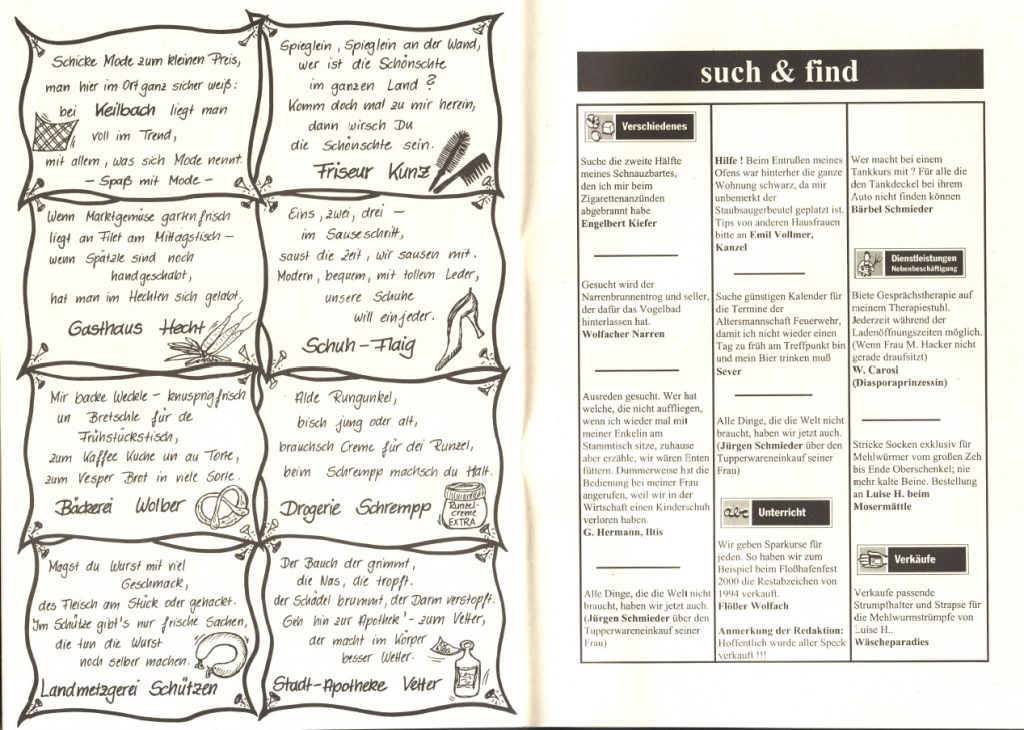 Schicke Mode zum kleinen Preis,
man hier im Ort ganz sicher weiß:
bei Keilbach liegt man
voll im Trend,
mit allem, was sich Mode nennt.
– Spaß mit Mode –
Spieglein, Spieglein an der Wand,
wer ist die Schönschte
im ganzen Land?
Komm doch mal zu mir herein,
dann wirsch Du
die Schönschte sein.
Friseur Kunz
Wenn Marktgemüse gartenfrisch
liegt an Filet am Mittagstisch –
wenn Spätzle sind noch
handgeschabt,
hat man im Hechten sich gelabt.
Gasthaus Hecht
Eins, zwei, drei –
im Sauseschritt,
saust die Zeit, wir sausen mit.
Modern, bequem, mit tollem Leder,
unsere Schuhe
will ein jeder.
Schuh-Flaig
Mir backe Weckle – knusprig frisch
un Bretschle für de
Frühstückstisch,
zum Kaffee Kuche un au Torte,
zum Vesper Brot in viele Sorte.
Bäckerei Wolber
Alde Rungunkel,
bisch jung oder alt,
brauchsch Creme für dei Runzel,
beim Schrempp machsch du Halt.
Drogerie Schrempp
Runzel-
creme
EXTRA
Magst du Wurst mit viel
Geschmack,
des Fleisch am Stück oder gehacket.
Im Schütze gibt's nur frische Sachen,
die tun die Wurst
noch selber machen.
Landmetzgerei Schützen
Der Bauch der grimmt,
die Nas, die tropft.
der Schädel brummt, der Darm verstopft.
Geh hin zur Apothek' - zum Vetter,
der macht im Körper
besser Wetter.
Stadt-Apotheke Vetter
such & find
Verschiedenes
Suche die zweite Hälfte
meines Schnauzbartes,
den ich mir beim
Zigarettenanzünden
abgebrannt habe
Engelbert Kiefer
Gesucht wird der
Narrenbrunnentrog und seller,
der dafür das Vogelbad
hinterlassen hat.
Wolfacher Narren
Ausreden gesucht. Wer hat
welche, die nicht auffliegen,
wenn ich wieder mal mit
meiner Enkelin am
Stammtisch sitze, zuhause
aber erzähle, wir wären Enten
füttern. Dummerweise hat die
Bedienung bei meiner Frau
angerufen, weil wir in der
Wirtschaft einen Kinderschuh
verloren haben.
G. Hermann, Iltis
Alle Dinge, die die Welt nicht
braucht, haben wir jetzt auch.
(Jürgen Schmieder über den
Tupperwareneinkauf seiner
Frau)
Hilfe ! Beim Entrußen meines
Ofens war hinterher die ganze
Wohnung schwarz, da mir
unbemerkt der
Staubsaugerbeutel geplatzt ist.
Tips von anderen Hausfrauen
bitte an Emil Vollmer,
Kanzel
Suche günstigen Kalender für
die Termine der
Altersmannschaft Feuerwehr,
damit ich nicht wieder einen
Tag zu früh am Treffpunkt bin
und mein Bier trinken muß
Sever
Alle Dinge, die die Welt nicht
braucht, haben wir jetzt auch.
(Jürgen Schmieder über den
Tupperwareneinkauf seiner
Frau)
abc Unterricht
Wir geben Sparkurse für
jeden. So haben wir zum
Beispiel beim Floßhafenfest
2000 die Restabzeichen von
1994 verkauft.
Flößer Wolfach
Anmerkung der Redaktion:
Hoffentlich wurde aller Speck
verkauft !!!
Wer macht bei einem
Tankkurs mit ? Für alle die
den Tankdeckel bei ihrem
Auto nicht finden können
Bärbel Schmieder
Dienstleistungen
Nebenbeschäftigung
Biete Gesprächstherapie auf
meinem Therapiestuhl.
Jederzeit während der
Ladenöffnungszeiten möglich.
(Wenn Frau M. Hacker nicht
gerade draufsitzt)
W. Carosi
(Diasporaprinzessin)
Stricke Socken exklusiv für
Mehlwürmer vom großen Zeh
bis Ende Oberschenkel; nie
mehr kalte Beine. Bestellung
an Luise H. beim
Mosermättle
Verkäufe
Verkaufe passende
Strumpfhalter und Strapse für
die Mehlwurmstrümpfe von
Luise H..
Wäscheparadies